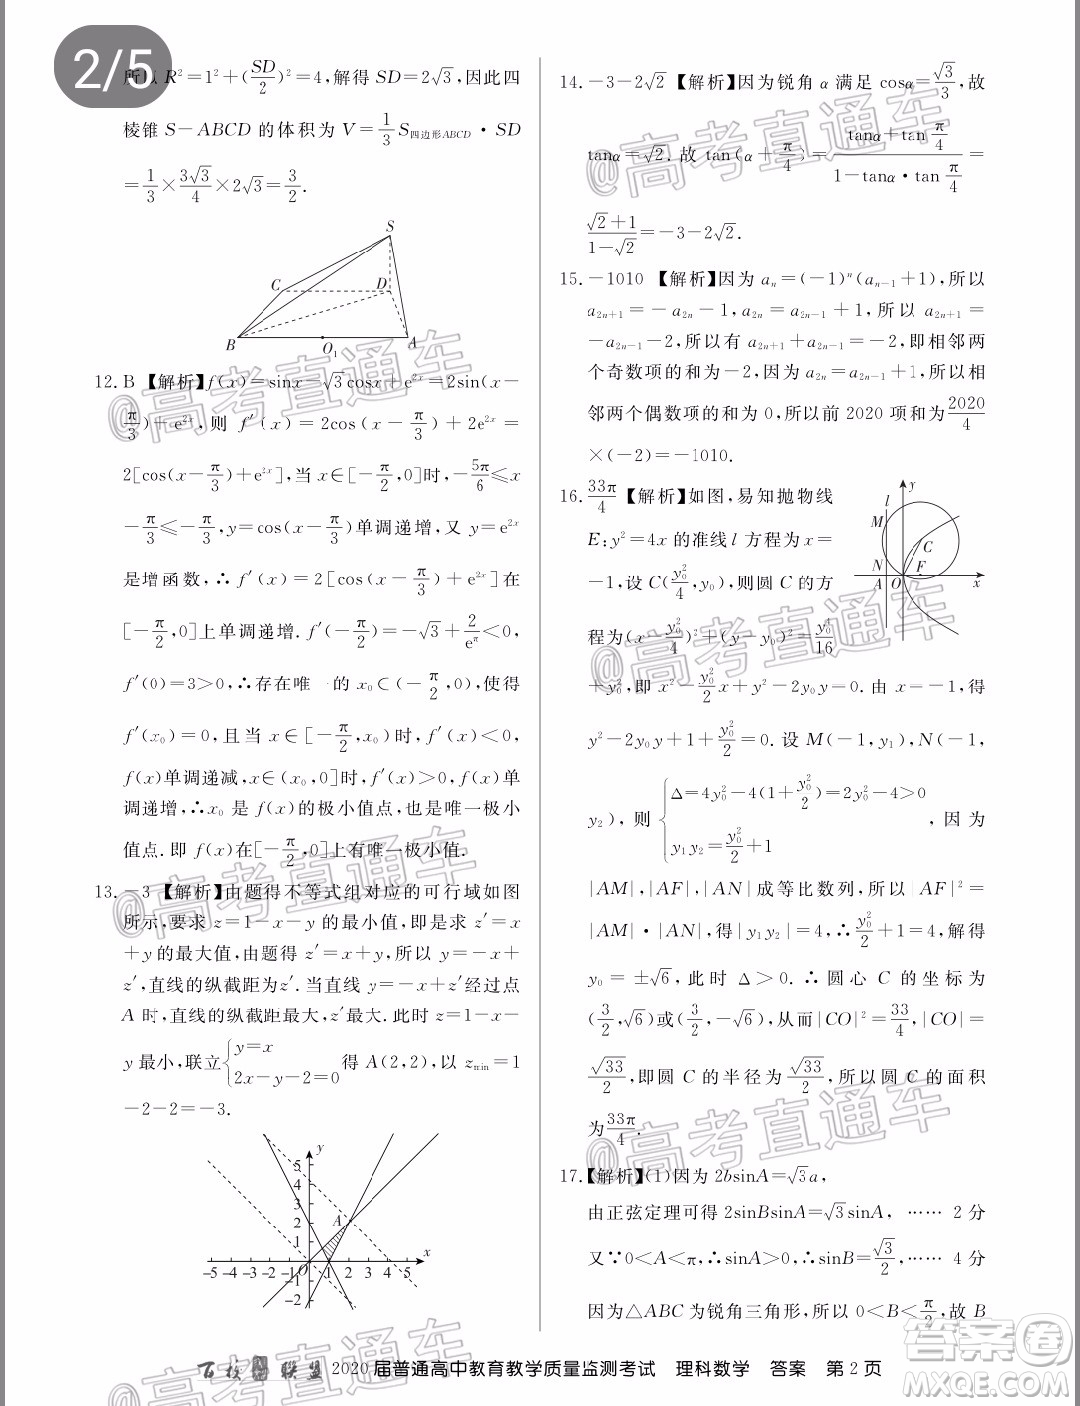 2/5
所以 R²=1²+(SD/2)²=4,解得 SD=2√3,因此四
棱锥 S-ABCD 的体积为 V=1/3 S四边形ABCD·SD
=1/3×3√3/4×2√3=3/2.
S
C
D
B
O₁
A
12.B 【解析】f(x)=sinx-√3cosx+e²ˣ=2sin(x-
π/3)+e²ˣ,则 f′(x)=2cos(x-π/3)+2e²ˣ=
2[cos(x-π/3)+e²ˣ],当 x∈[-π/2,0]时,-5π/6≤x
-π/3≤-π/3,y=cos(x-π/3)单调递增,又 y=e²ˣ
是增函数,∴f′(x)=2[cos(x-π/3)+e²ˣ]在
[-π/2,0]上单调递增.f′(-π/2)=-√3+2/e^π<0,
f′(0)=3>0,∴存在唯一的 x₀∈(-π/2,0),使得
f′(x₀)=0,且当 x∈[-π/2,x₀)时,f′(x)<0,
f(x)单调递减,x∈(x₀,0]时,f′(x)>0,f(x)单
调递增,∴x₀ 是 f(x)的极小值点,也是唯一极小
值点.即 f(x)在[-π/2,0]上有唯一极小值.
13.-3 【解析】由题得不等式组对应的可行域如图
所示,要求 z=1-x-y 的最小值,即是求 z′=x
+y 的最大值,由题得 z′=x+y,所以 y=-x+
z′,直线的纵截距为z′.当直线 y=-x+z′经过点
A 时,直线的纵截距最大,z′最大.此时 z=1-x-
y 最小,联立{y=x
2x-y-2=0 得 A(2,2),以 zmin=1
-2-2=-3.
y
5
4
3
2
1
A
x
-5-4-3-2-1 O 1 2 3 4 5
-1
-2
14.-3-2√2 【解析】因为锐角 α 满足 cosα=√3/3,故
tanα=√2.故 tan(α+π/4)=(tanα+tan π/4)/(1-tanα·tan π/4)=
(√2+1)/(1-√2)=-3-2√2.
15.-1010 【解析】因为 aₙ=(-1)ⁿ(aₙ₋₁+1),所以
a₂ₙ₊₁=-a₂ₙ-1,a₂ₙ=a₂ₙ₋₁+1,所以 a₂ₙ₊₁=
-a₂ₙ₋₁-2,所以有 a₂ₙ₊₁+a₂ₙ₋₁=-2,即相邻两
个奇数项的和为-2,因为 a₂ₙ=a₂ₙ₋₁+1,所以相
邻两个偶数项的和为 0,所以前 2020 项和为2020/4
×(-2)=-1010.
16.33π/4 【解析】如图,易知抛物线
E:y²=4x 的准线 l 方程为 x=
-1,设 C(y₀²/4,y₀),则圆 C 的方
程为(x-y₀²/4)²+(y-y₀)²=y₀⁴/16
+y₀²,即 x²-y₀²/2 x+y²-2y₀y=0.由 x=-1,得
y²-2y₀y+1+y₀²/2=0.设 M(-1,y₁),N(-1,
y₂),则{Δ=4y₀²-4(1+y₀²/2)=2y₀²-4>0
y₁y₂=y₀²/2+1 ,因为
|AM|,|AF|,|AN|成等比数列,所以|AF|²=
|AM|·|AN|,得|y₁y₂|=4,∴y₀²/2+1=4,解得
y₀=±√6,此时 Δ>0.∴圆心 C 的坐标为
(3/2,√6)或(3/2,-√6),从而|CO|²=33/4,|CO|=
√33/2,即圆 C 的半径为√33/2,所以圆 C 的面积
为33π/4.
l
y
M
C
N
A
O
F
x
17.【解析】(1)因为 2bsinA=√3a,
由正弦定理可得 2sinBsinA=√3sinA, …… 2 分
又∵0<A<π,∴sinA>0,∴sinB=√3/2,…… 4 分
因为△ABC 为锐角三角形,所以 0<B<π/2,故 B
百校联盟 2020 届普通高中教育教学质量监测考试 理科数学 答案 第 2 页
@高考直通车
@高考直通车
@高考直通车
@高考直通车
@高考直通车
@高考直通车
@高考直通车
答案圈
MXQE.COM